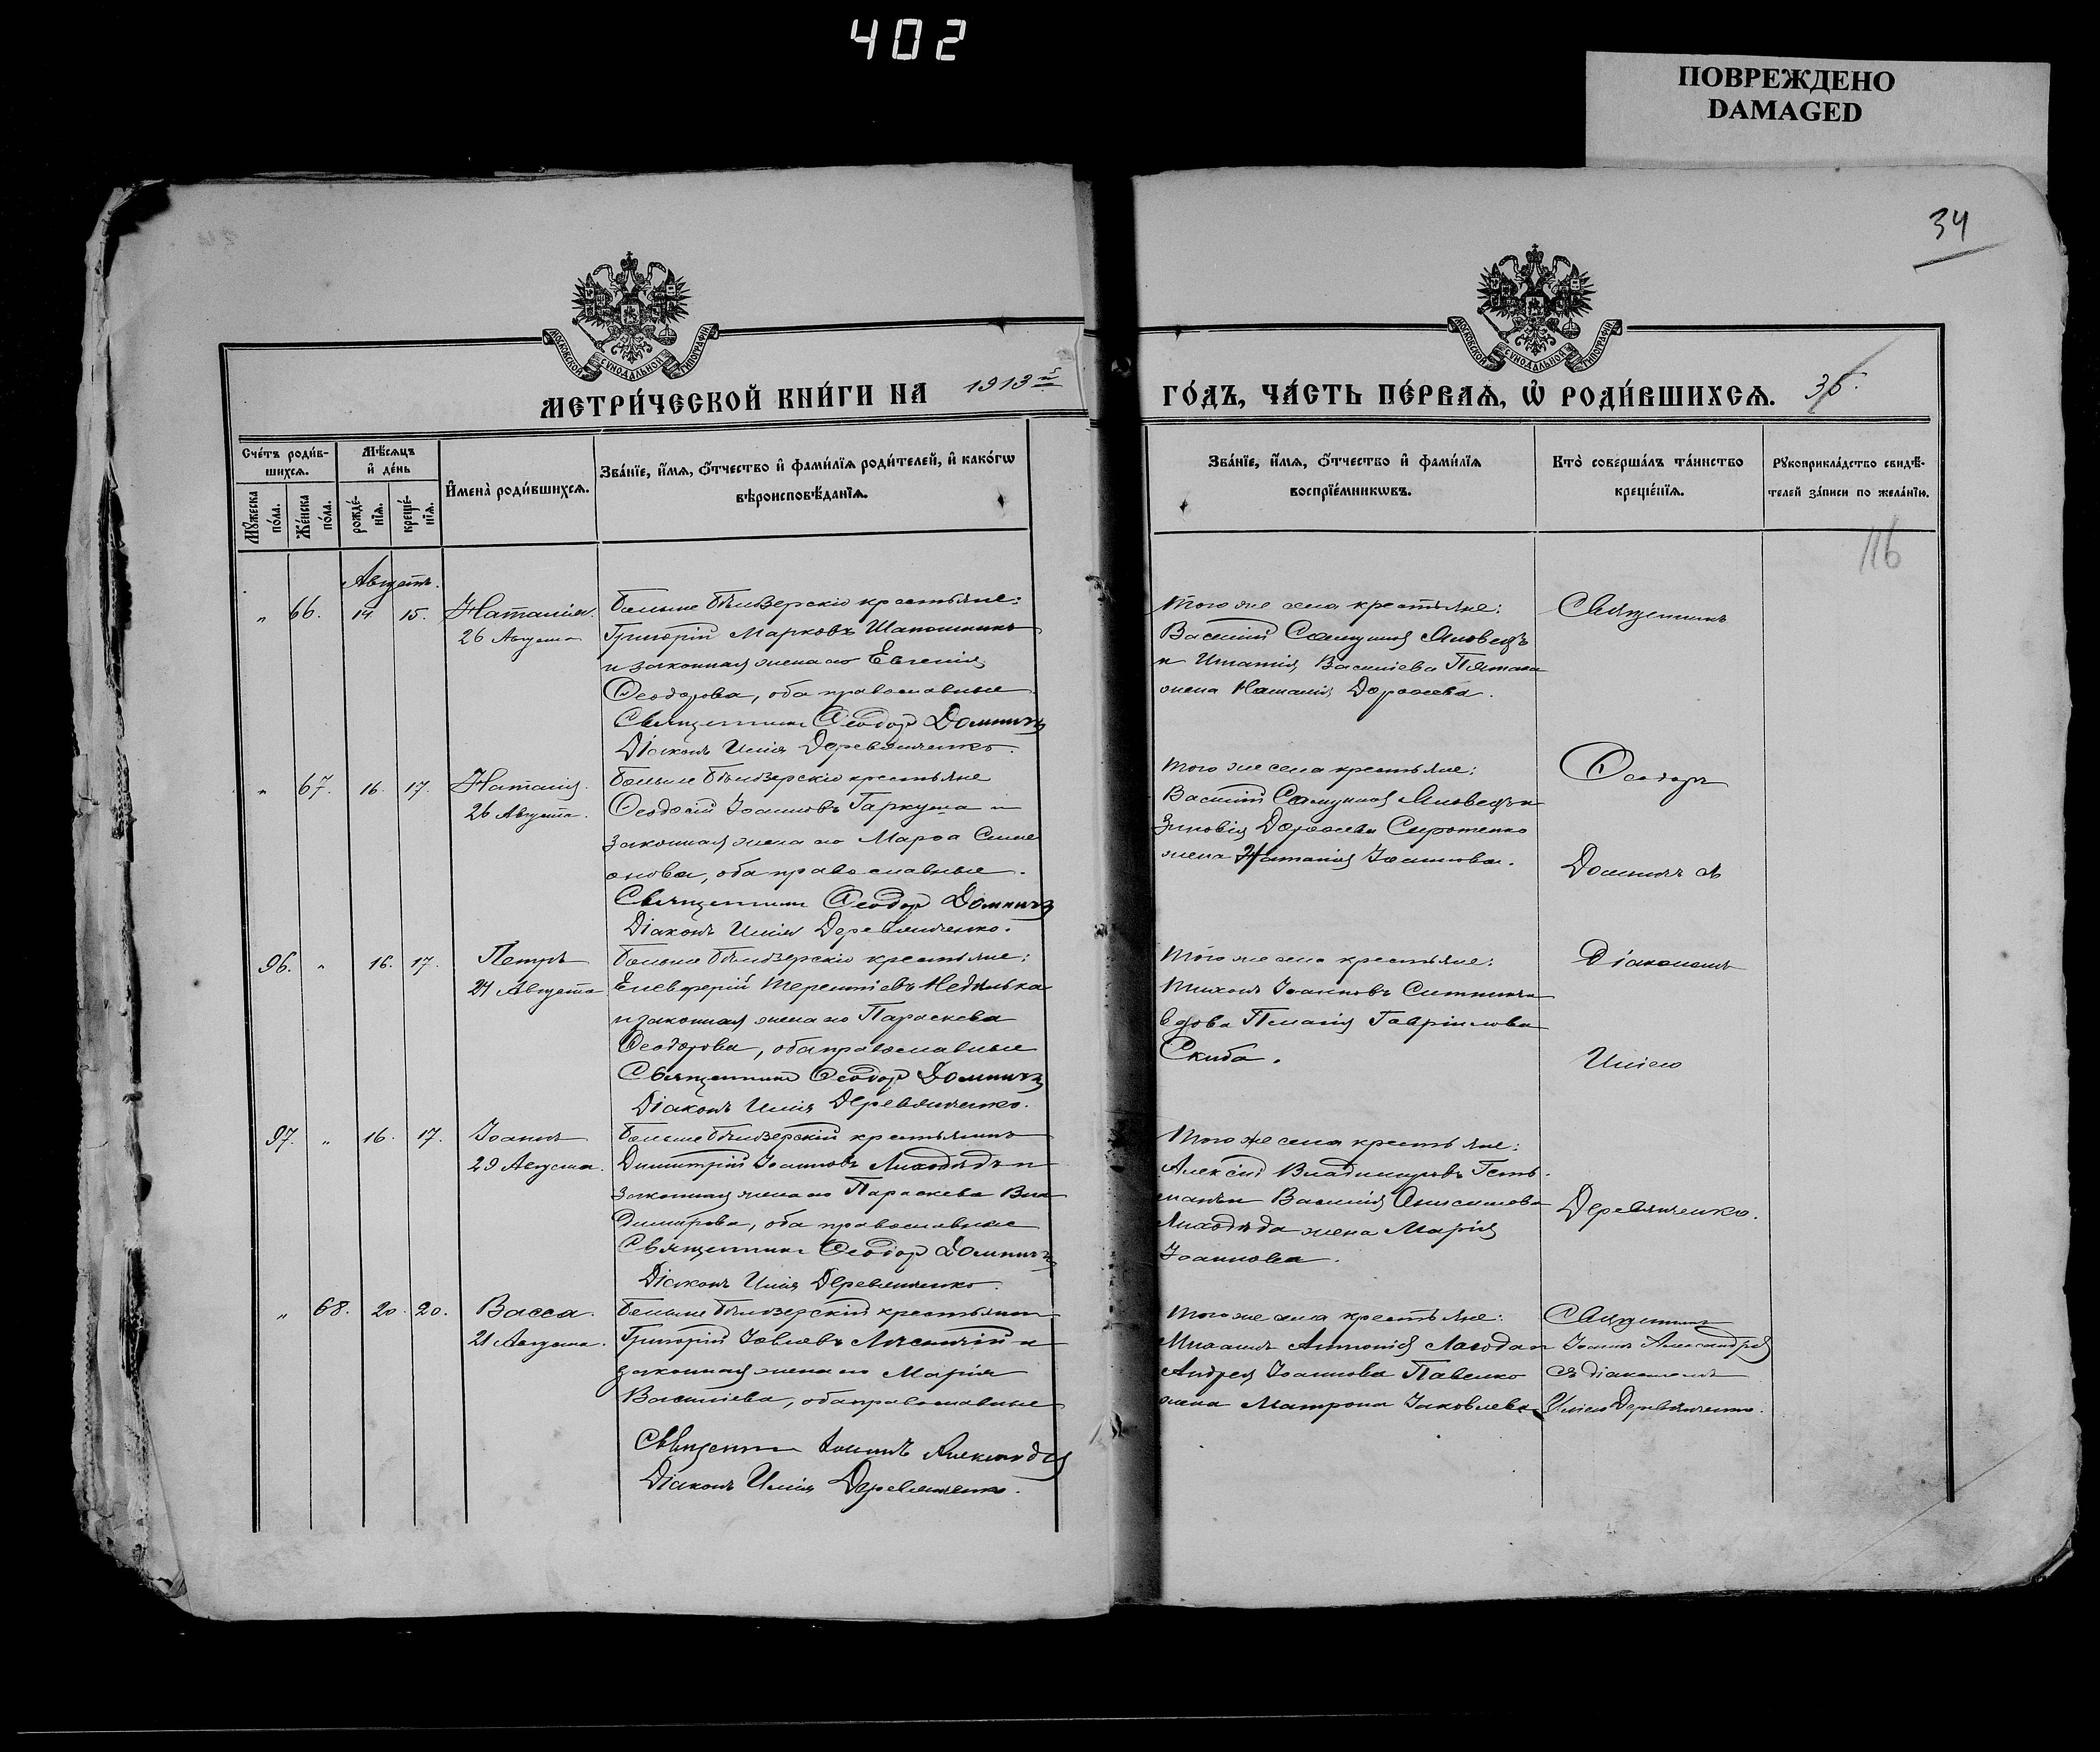 402
ПОВРЕЖДЕНО
DAMAGED
34
МОСКОВСКОЙ СѴНОДАЛЬНОЙ ТИПОГРАФІИ
МОСКОВСКОЙ СѴНОДАЛЬНОЙ ТИПОГРАФІИ
МЕТРИ́ЧЕСКОЙ КНИ́ГИ НА 1913й
ГО́ДЪ, ЧА́СТЬ ПЕ́РВАѦ, Ѽ РОДИ́ВШИХСѦ. 35.
Сче́тъ роди́в-
шихсѧ.
Мꙋ́жеска
по́ла.
Же́нска
по́ла.
Мѣ́сѧцъ
и҆ де́нь
рожде́-
нїѧ.
креще́-
нїѧ.
И҆мена̀ роди́вшихсѧ.
Зва́нїе, и҆́мѧ, ѻ҆́тчество и҆ фами́лїѧ роди́телей, и҆ како́гѡ
вѣроисповѣ́данїѧ.
Зва́нїе, и҆́мѧ, ѻ҆́тчество и҆ фами́лїѧ
воспрїе́мникѡвъ.
Кто̀ соверша́лъ та́инство
креще́нїѧ.
Рꙋкоприкла́дство свидѣ́-
телей за́писи по жела́нїю.
116
Августъ.
„ 66. 14 15. Наталія.
26 Августа
Больше Бѣлозерскіе крестьяне:
Григорій Марковъ Шапошникъ
и законная жена его Евгенія
Ѳеодорова, оба православные
Священникъ Ѳеодоръ Домничъ
Діаконъ Илія Деревянченко.
Того же села крестьяне:
Василій Самуиловъ Яловецъ
и Игнатія Васильева
жена Наталія Дороѳеева.
Священникъ
„ 67. 16. 17. Наталія.
26 Августа.
Больше Бѣлозерскіе крестьяне
Ѳеодосій Іоанновъ Гаркуша и
законная жена его Марѳа Симе
онова, оба православные.
Священникъ Ѳеодоръ Домничъ
Діаконъ Илія Деревянченко.
Того же села крестьяне:
Василій Самуиловъ Яловецъ и
Зиновія Дороѳеева Сиротенко
жена Наталія Іоаннова.
Ѳеодоръ
Домничъ съ
96. „ 16. 17. Петръ
24 Августа
Больше Бѣлозерскіе крестьяне:
Елевѳерій Терентіевъ Недилька
и законная жена его Параскева
Ѳеодорова, оба православные
Священникъ Ѳеодоръ Домничъ
Діаконъ Илія Деревянченко.
Того же села крестьяне:
Тихонъ Іоанновъ Ситникъ и
вдова Пелагія Гавріилова
Скиба.
Діакономъ
Иліею
97. „ 16. 17. Іоаннъ
29 Августа.
Больше Бѣлозерскій крестьянинъ
Димитрій Іоанновъ Лиходѣдъ и
законная жена его Параскева Вла
димірова, оба православные
Священникъ Ѳеодоръ Домничъ
Діаконъ Илія Деревянченко.
Того же села крестьяне:
Алексій Владиміровъ Геть
манъ и Василія Анисимова
Лиходѣда жена Марія
Іоаннова.
Деревянченко.
„ 68. 20. 20. Васса.
21 Августа.
Больше Бѣлозерскій крестьянинъ
Григорій Іовлевъ Лѣсничій и
законная жена его Марія
Васильева, оба православные
Священникъ Іоаннъ
Діаконъ Илія Деревянченко.
Того же села крестьяне:
Михаилъ Антоніевъ Лагода и
Андрея Іоаннова Павленко
жена Матрона Іаковлева
Священникъ
Іоаннъ
съ діакономъ
Иліею Деревянченко.